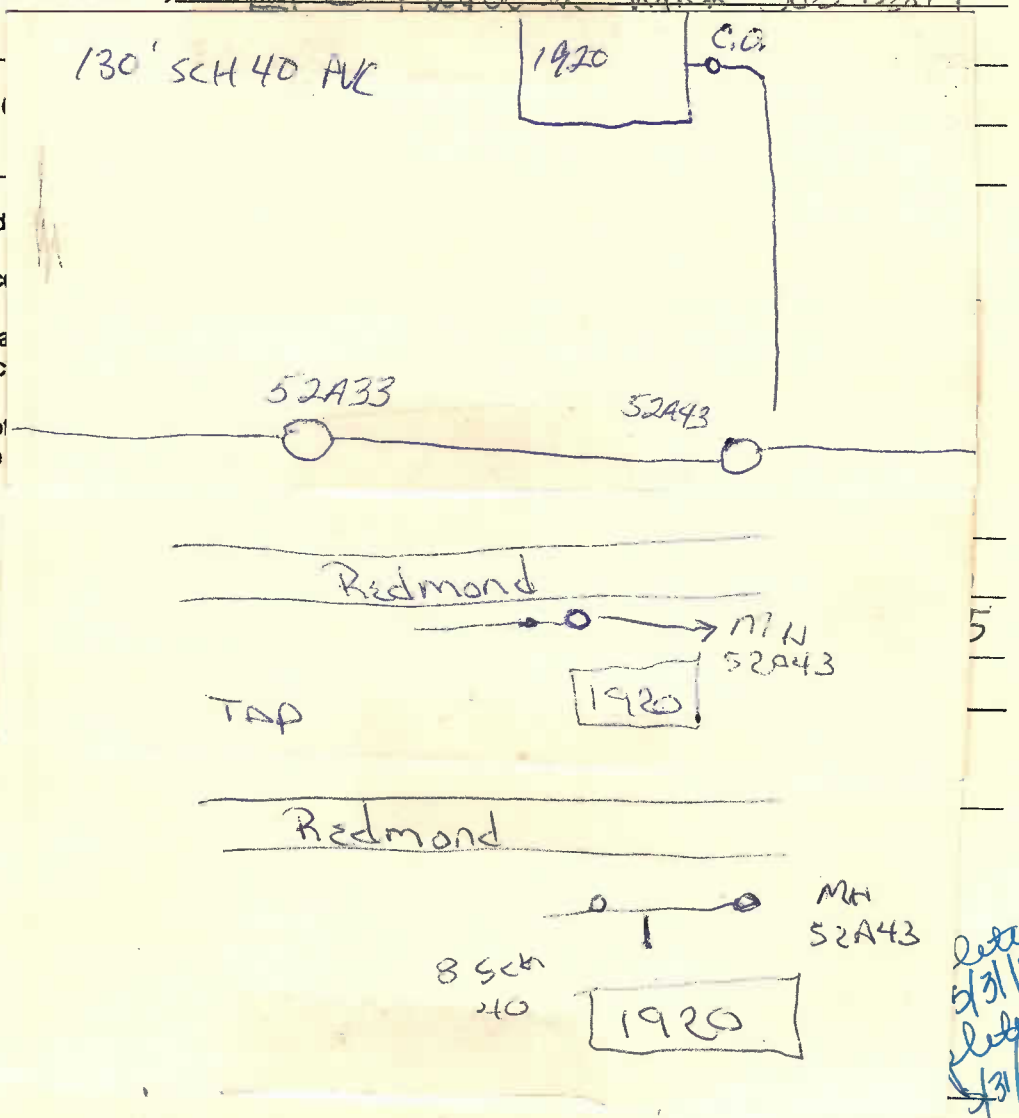 130' SCH 40 PVC
1920
C.O.
52A33
52A43
Redmond
MH
52A43
1920
TAP
Redmond
MH
52A43
8 SCH
40
1920
5
5/31/
5/31/